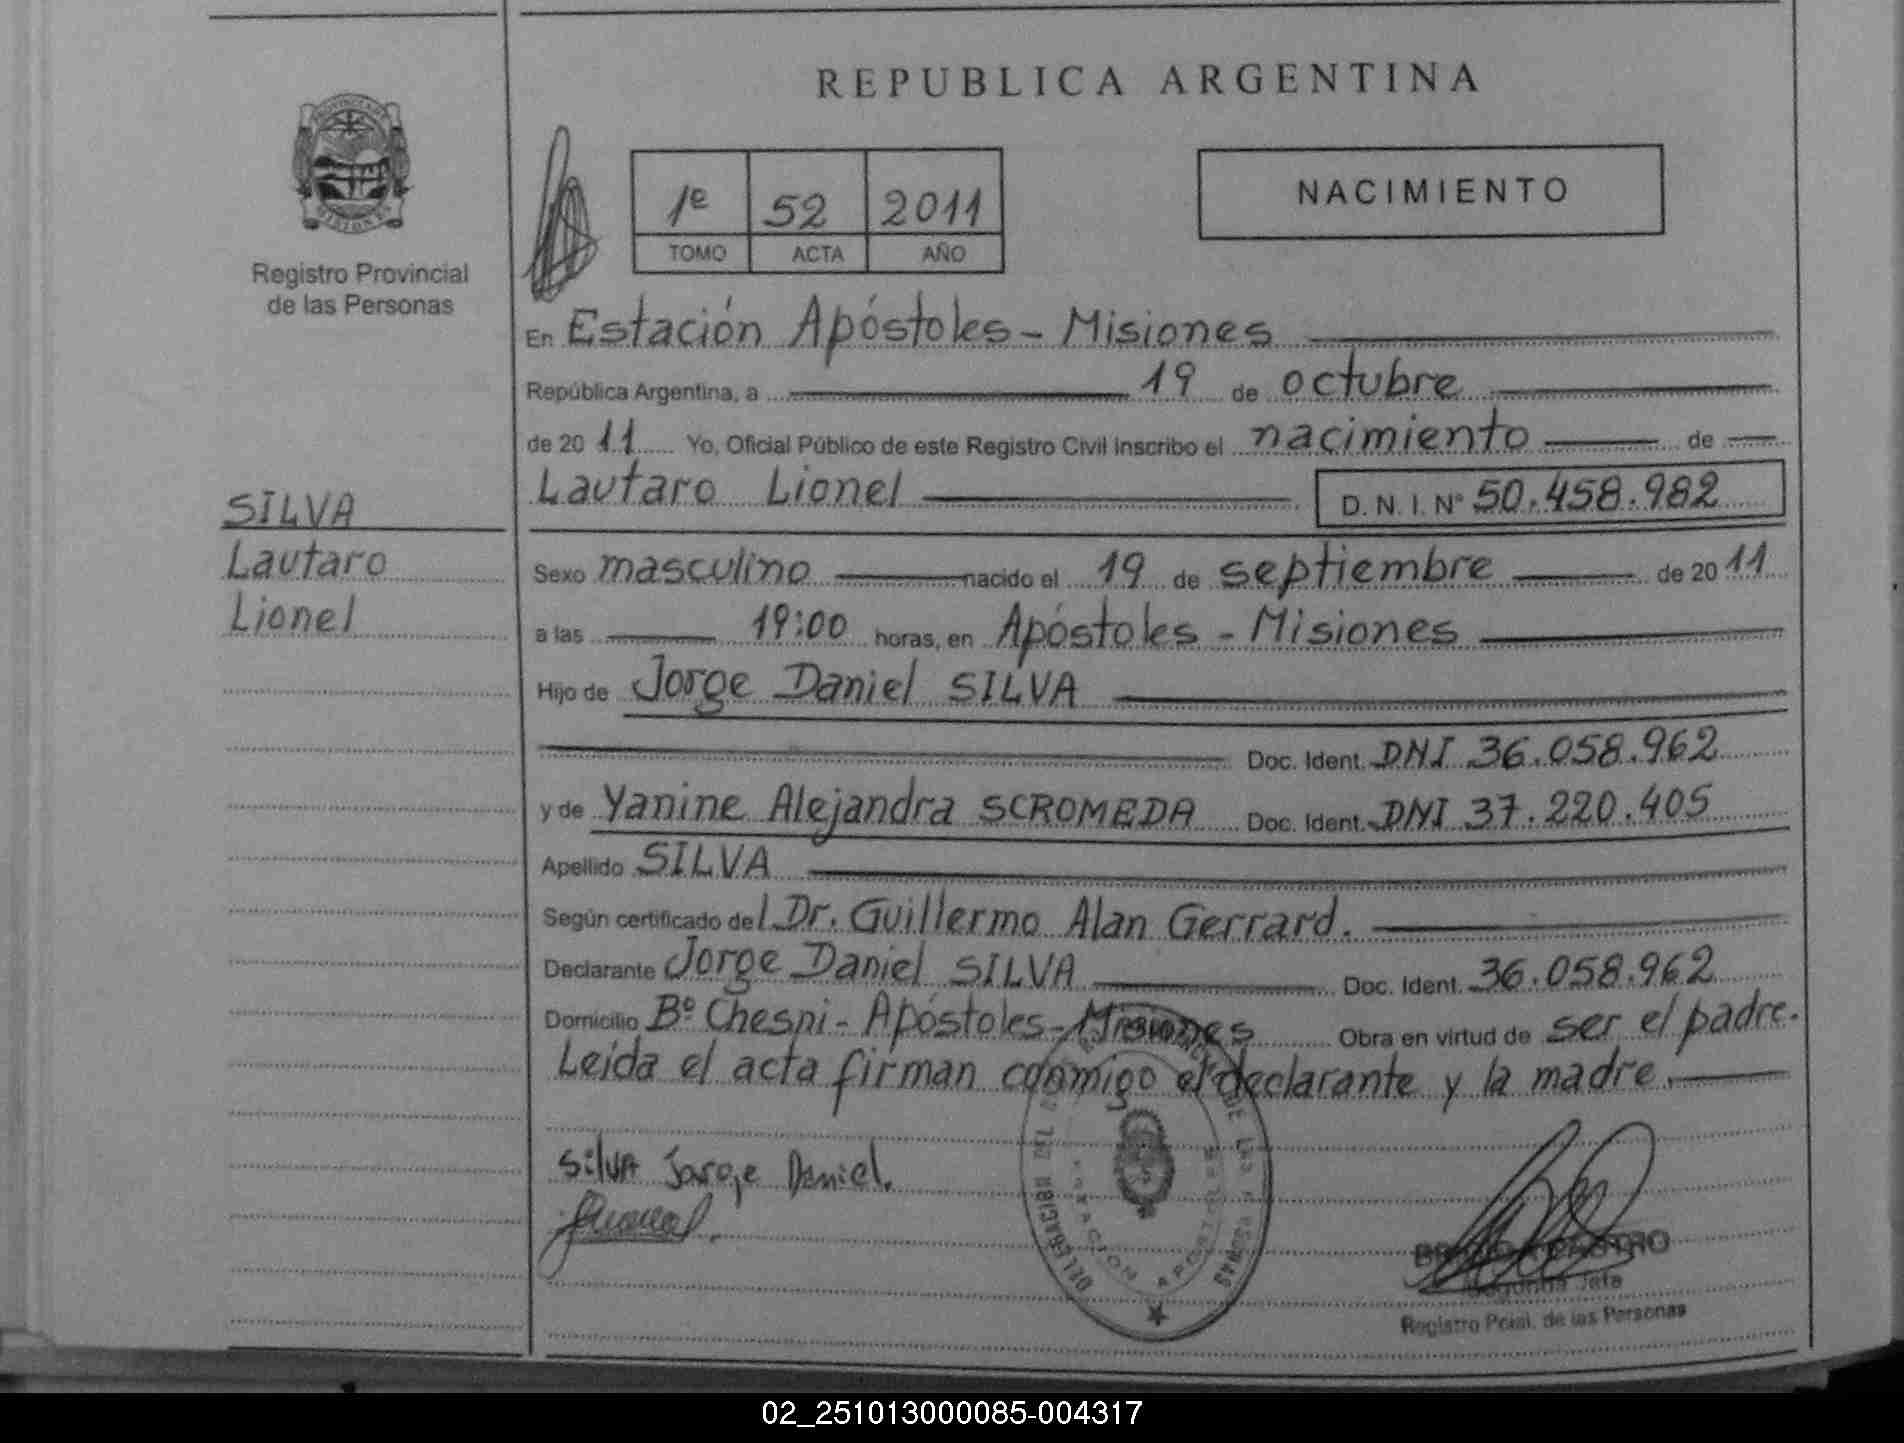 REPUBLICA ARGENTINA
1e 52 2011
TOMO ACTA AÑO
NACIMIENTO
Registro Provincial
de las Personas
SILVA
Lautaro
Lionel
En Estación Apóstoles - Misiones
República Argentina, a 19 de octubre
de 2011 Yo, Oficial Público de este Registro Civil Inscribo el nacimiento de
Lautaro Lionel D. N. I. N° 50.458.982
Sexo masculino nacido el 19 de septiembre de 2011
a las 19:00 horas, en Apóstoles - Misiones
Hijo de Jorge Daniel SILVA
Doc. Ident. DNI 36.058.962
y de Yanine Alejandra SCROMEDA Doc. Ident. DNI 37.220.405
Apellido SILVA
Según certificado del Dr. Guillermo Alan Gerrard.
Declarante Jorge Daniel SILVA Doc. Ident. 36.058.962
Domicilio B° Chesni - Apóstoles - Misiones Obra en virtud de ser el padre.
Leída el acta firman conmigo el declarante y la madre.
Silva Jorge Daniel.
DELEGACION
ESTACION APOSTOLES
CASTRO
Segunda Jefa
Registro Pcial. de las Personas
02_251013000085-004317